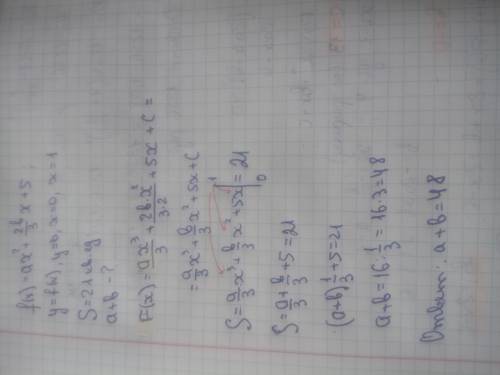 f(x) = ax² + 2b/3 x + 5;
y = f(x), y=0, x=0, x=1
S = 21 кв.ед
a+b - ?
F(x) = ax³/3 + 2b·x²/3·2 + 5x + C =
= a/3 x³ + b/3 x² + 5x + C
S = a/3 x³ + b/3 x² + 5x |¹₀ = 21
S = a/3 + b/3 + 5 = 21
(a+b) 1/3 + 5 = 21
a+b = 16 : 1/3 = 16·3 = 48
Ответ: a+b = 48